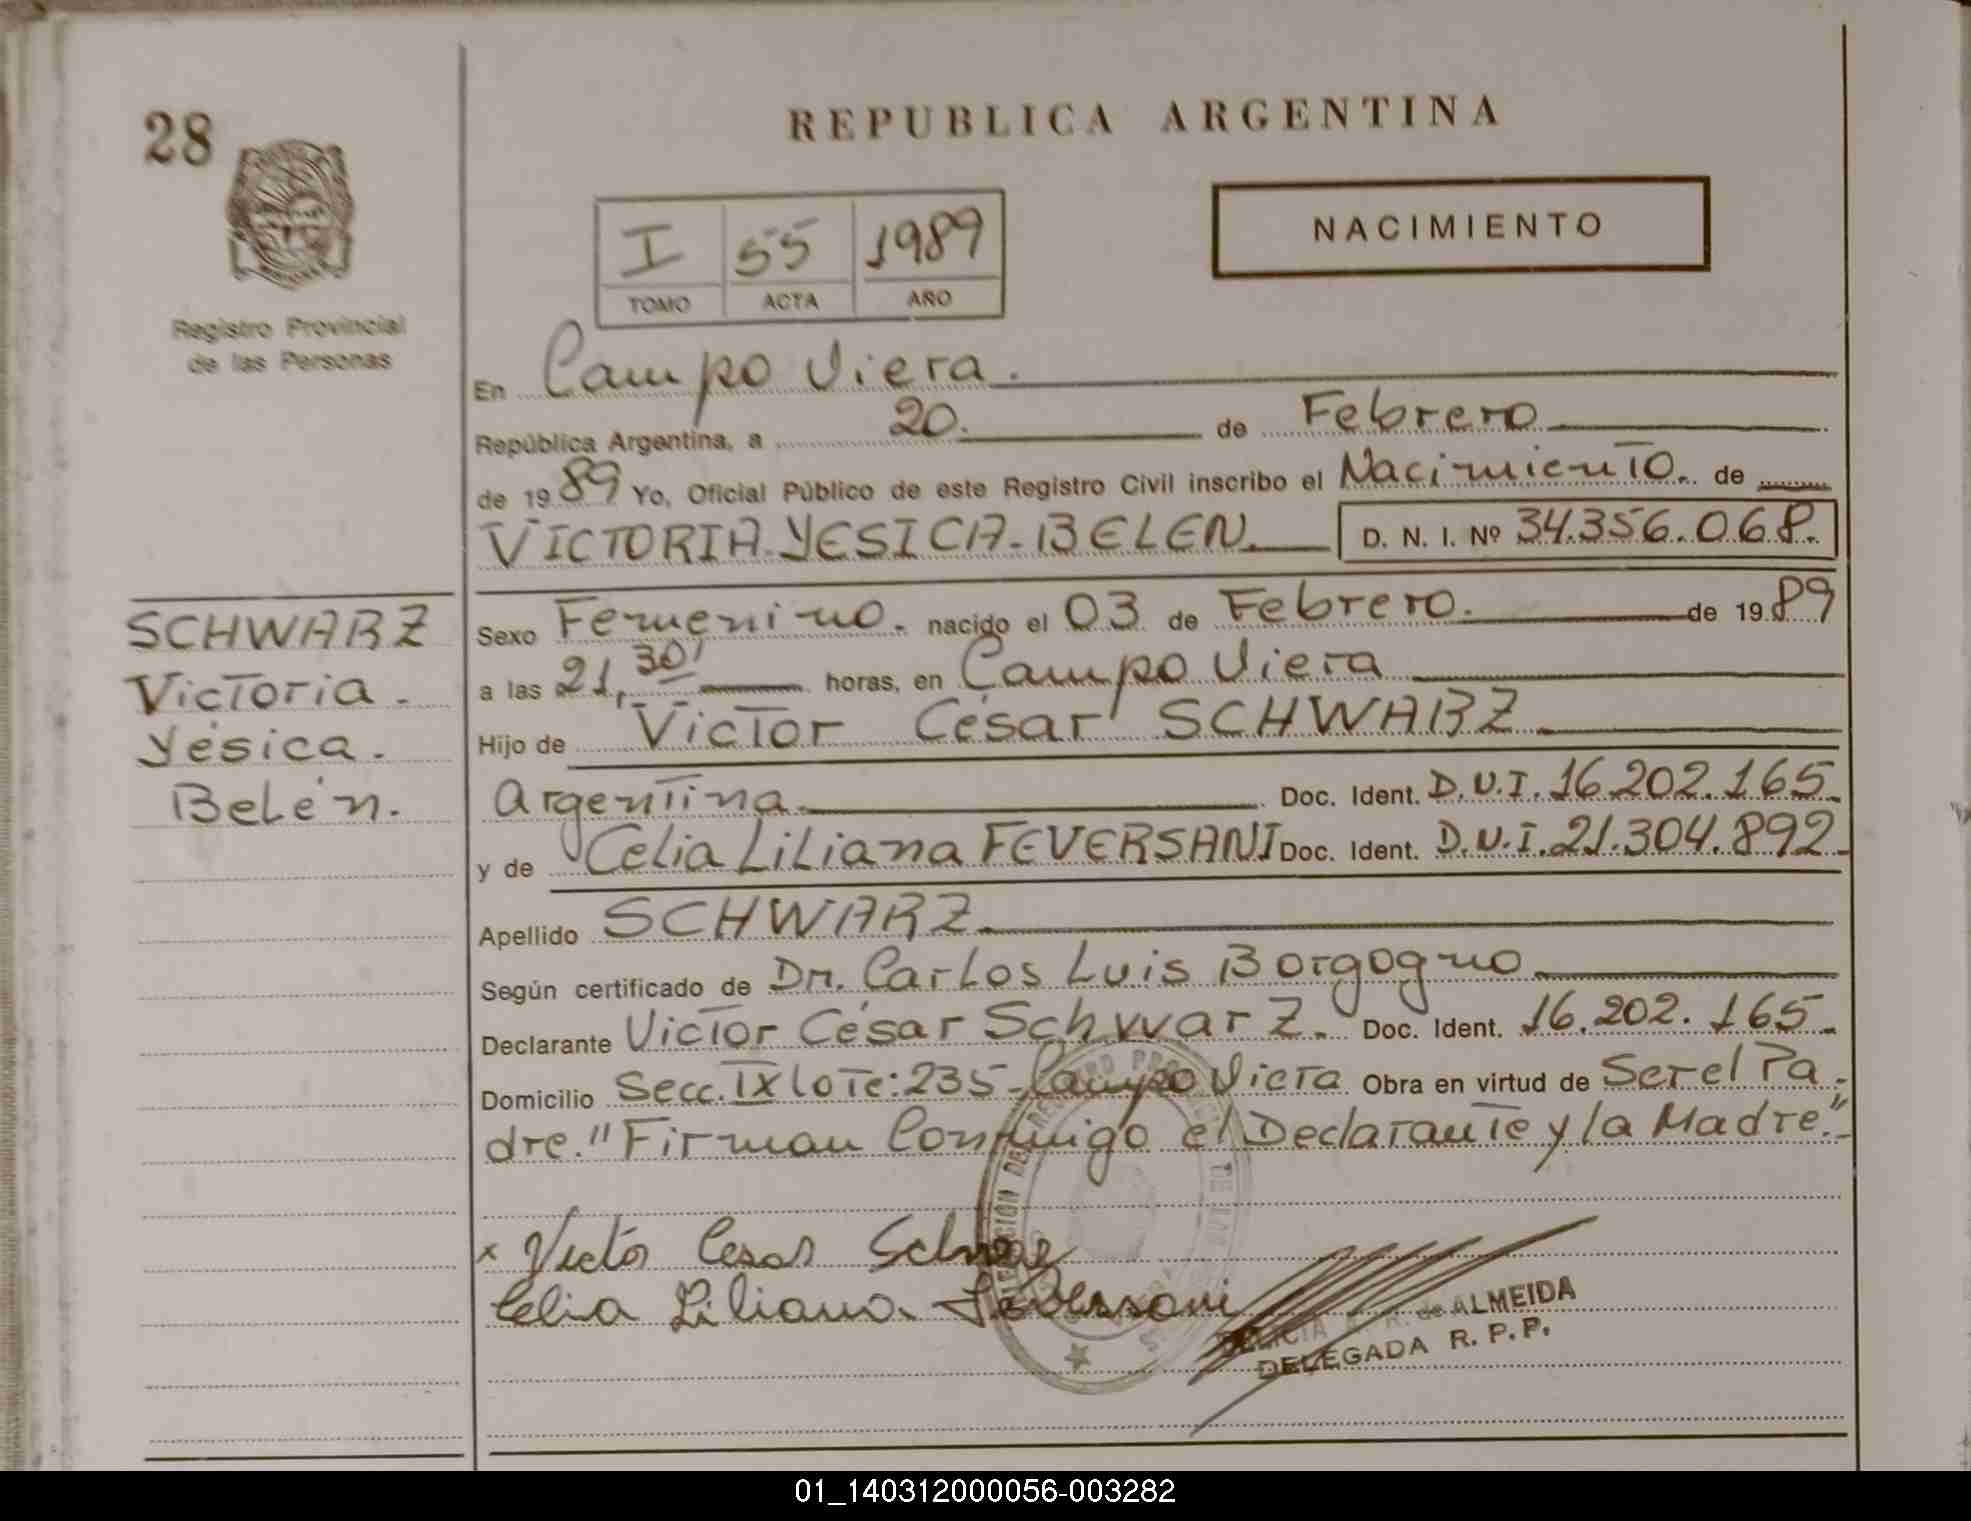 28
REPUBLICA ARGENTINA
NACIMIENTO
I 55 1989
TOMO ACTA AÑO
Registro Provincial
de las Personas
En Campo Viera.
República Argentina, a 20. de Febrero
de 1989 Yo, Oficial Público de este Registro Civil inscribo el Nacimiento. de
VICTORIA-YESICA-BELEN. D. N. I. Nº 34.356.068.
SCHWARZ
Victoria.
Yésica.
Belén.
Sexo Femenino. nacido el 03 de Febrero. de 1989
a las 21,30' horas, en Campo Viera
Hijo de Victor César SCHWARZ
Argentina. Doc. Ident. D.N.I. 16.202.165.
y de Celia Liliana FEVERSANI Doc. Ident. D.N.I. 21.304.892
Apellido SCHWARZ
Según certificado de Dr. Carlos Luis Borgogno
Declarante Victor César Schwarz. Doc. Ident. 16.202.165.
Domicilio Secc. IX lote: 235 - Campo Viera Obra en virtud de Ser el Pa-
dre. "Firman Conmigo el Declarante y la Madre."
x Victor Cesar
Celia Liliana Feversani
de ALMEIDA
DELEGADA R. P. P.
01_140312000056-003282